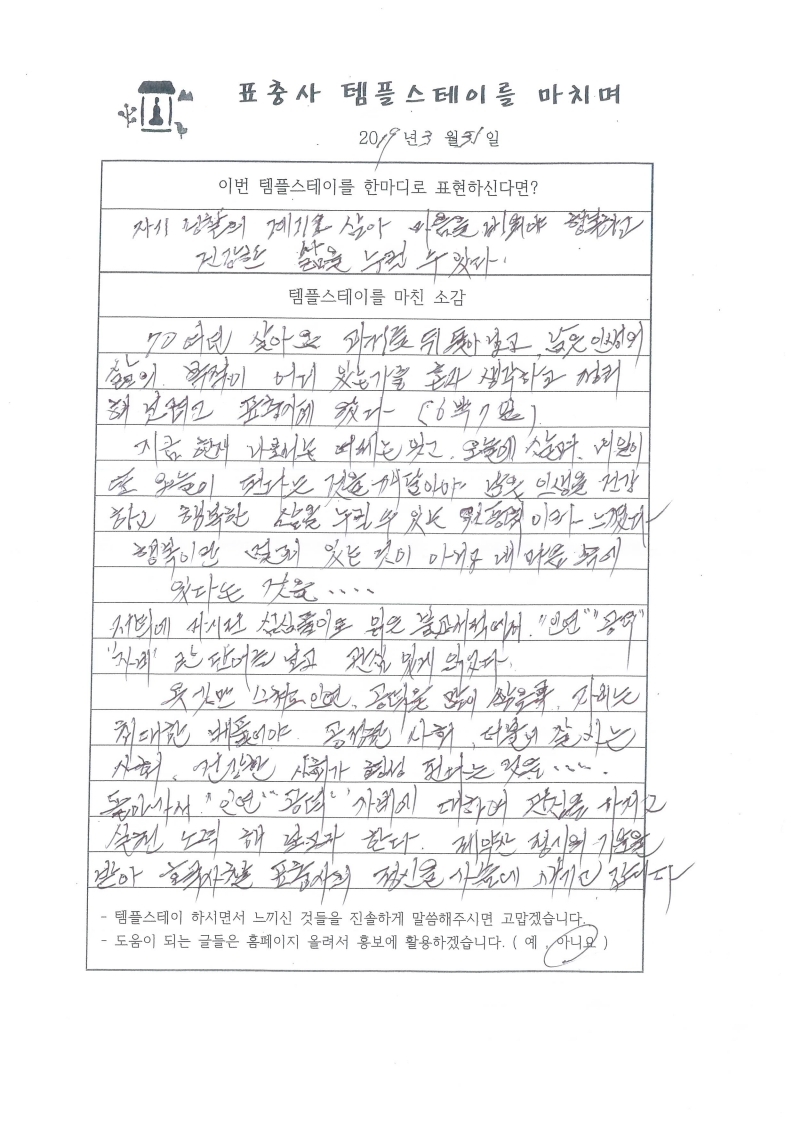 표충사 템플스테이를 마치며
2019년 3월 31일
이번 템플스테이를 한마디로 표현하신다면?
자기 성찰의 계기로 삼아 마음을 비워야 행복하고
건강한 삶을 누릴 수 있다.
템플스테이를 마친 소감
70여년 살아온 과거를 뒤돌아보고, 남은 인생의
삶의 목적이 어디 있는가를 혼자 생각하고 정리
해 보려고 표충사에 왔다. (6박7일)
지금 현재 나로서는 어제는 잊고, 오늘에 살며, 내일이
또 오늘이 된다는 것을 깨달아야 남은 인생을 건강
하고 행복한 삶을 누릴 수 있는 이라 느꼈다
행복이란 멀리 있는 것이 아니고 내 마음 속에
있다는 것을....
저녁에 심심풀이로 읽은 불교서적에서 "인연" "공덕"
"자비" 란 단어를 보고 관심 있게 읽었다.
옷깃만 스쳐도 인연, 공덕을 많이 쌓을수록, 자비는
최대한 베풀어야 공정한 사회, 더불어 잘 사는
사회, 건강한 사회가 형성 된다는 것을....
돌아가서 "인연" "공덕" 자비에 대하여 관심을 가지고
실천 노력 해 보고자 한다. 재약산 정기의 기운을
받아 호국사찰 표충사의 정신을 가슴에 새기고 간다
- 템플스테이 하시면서 느끼신 것들을 진솔하게 말씀해주시면 고맙겠습니다.
- 도움이 되는 글들은 홈페이지 올려서 홍보에 활용하겠습니다. ( 예 , 아니요 )